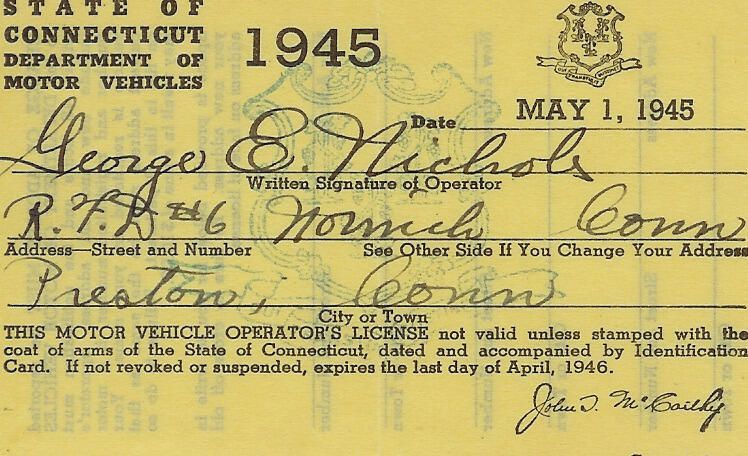 STATE OF
CONNECTICUT
DEPARTMENT OF
MOTOR VEHICLES
1945
Date MAY 1, 1945
George E. Nichols
Written Signature of Operator
R.F.D #6 Norwich Conn
Address—Street and Number See Other Side If You Change Your Address
Preston, Conn
City or Town
THIS MOTOR VEHICLE OPERATOR'S LICENSE not valid unless stamped with the
coat of arms of the State of Connecticut, dated and accompanied by Identification
Card. If not revoked or suspended, expires the last day of April, 1946.
John T. McCarthy